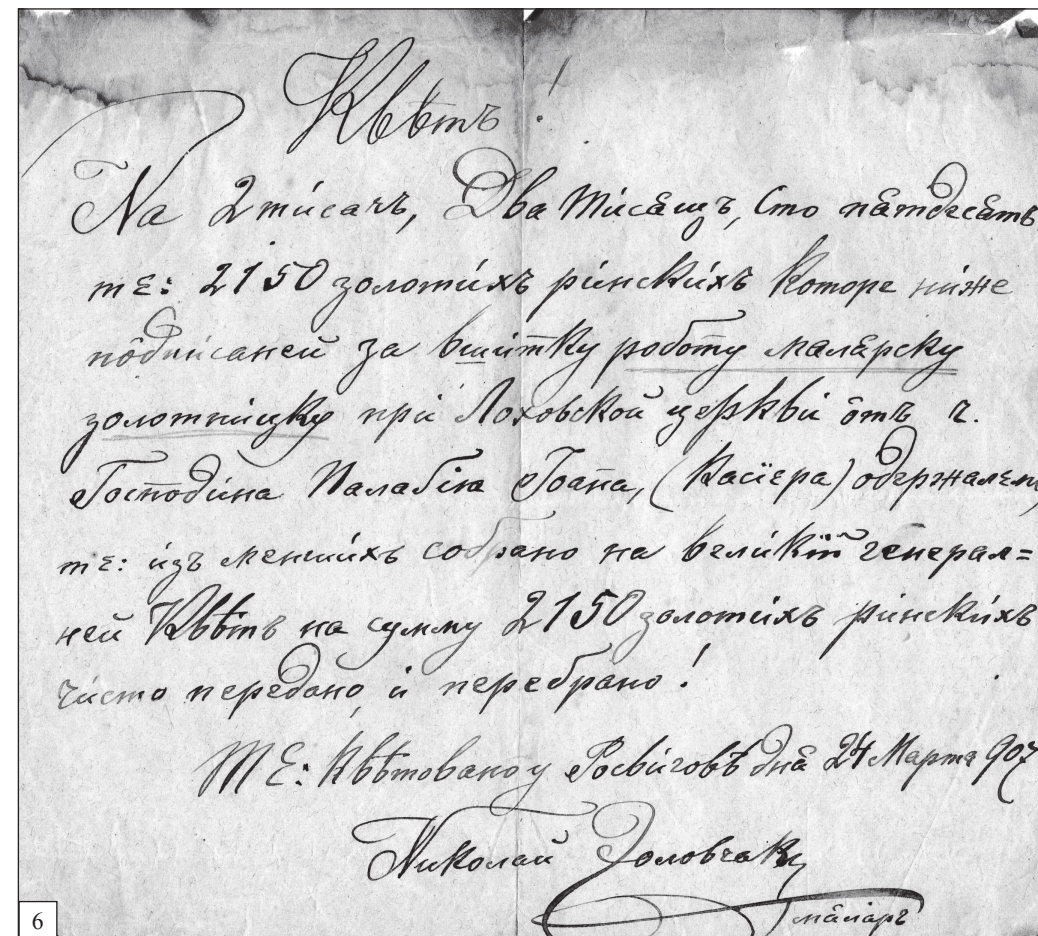 Квѣтъ!
На 2 тисячъ, Два тисящъ, Сто пятдесятъ,
т Е: 2150 золотихъ ринскихъ Которе ниже
подписаней за вшитку роботу малярску
золотницку при Лоховской церкви отъ ч.
Господина Палабiна Iоана, (Касiера) одержалем,
т Е: изъ менших собрано на великiй генерал=
ней Квѣтъ на сумму 2150 золотихъ ринскихъ
чисто передано, и перебрано!
Т Е: Квѣтовано у Росвиговѣ дня 24 Марта 907
Николай
маляръ
6